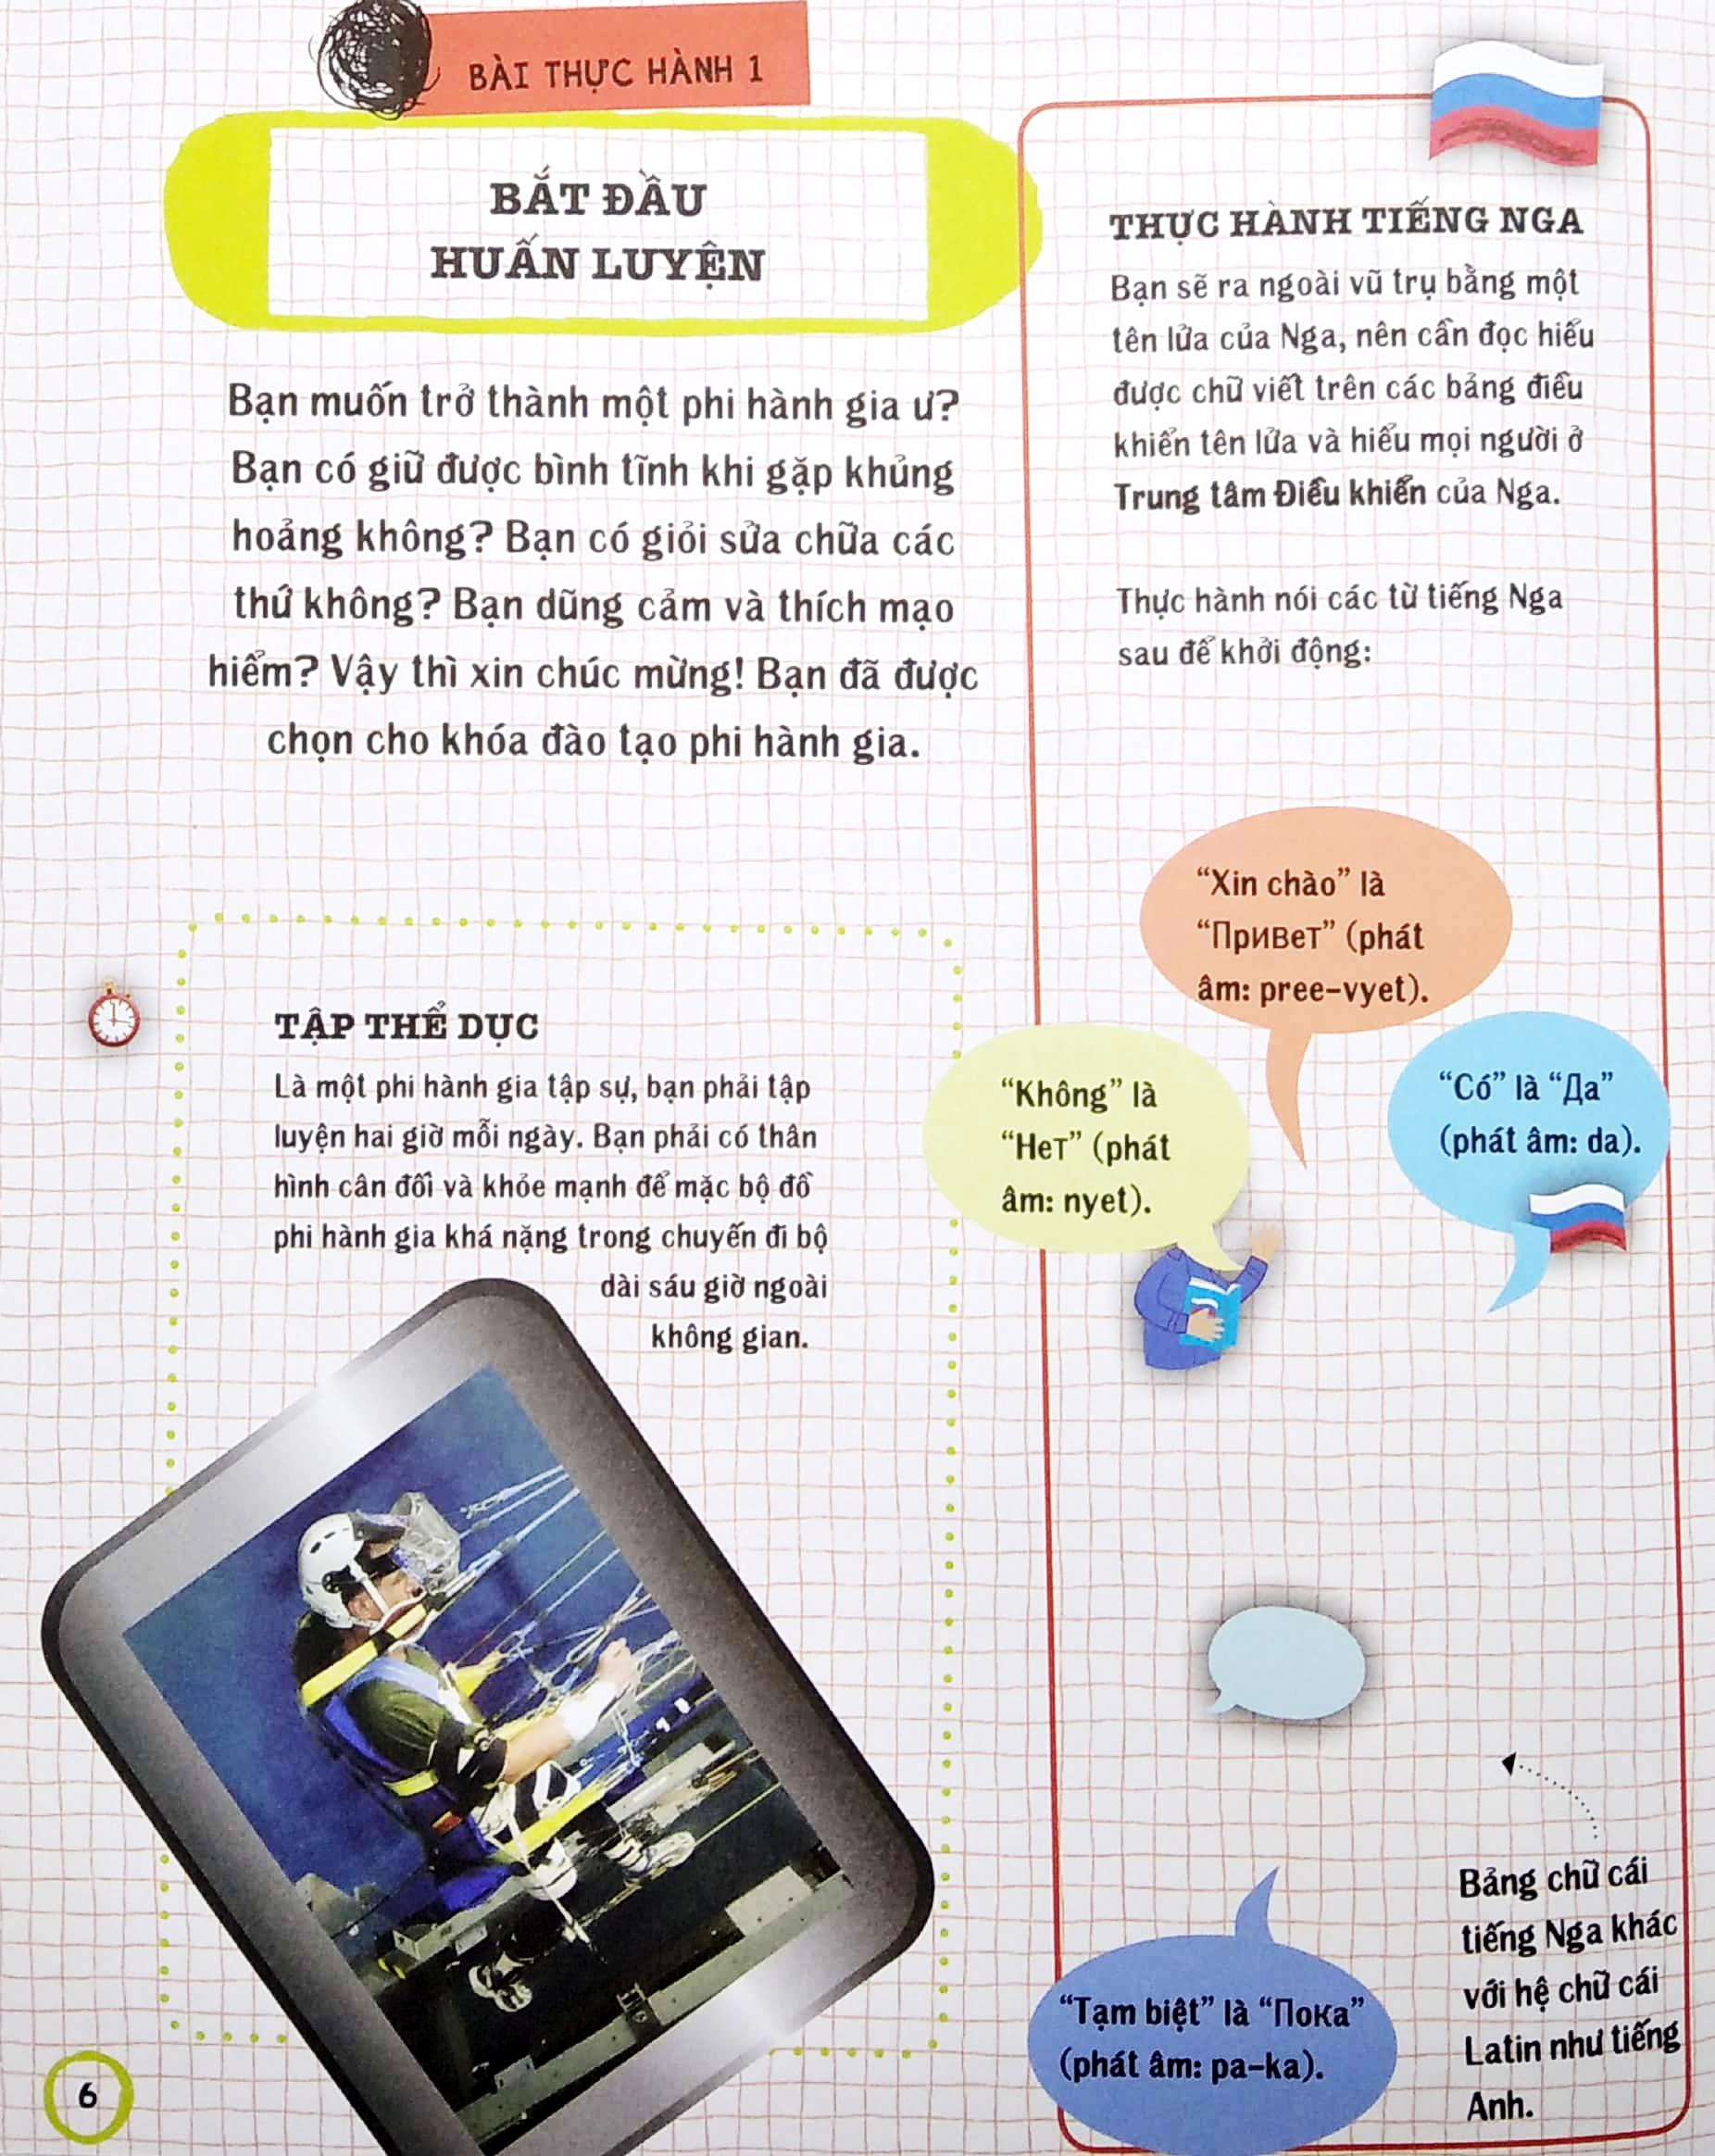 BÀI THỰC HÀNH 1
BẮT ĐẦU
HUẤN LUYỆN
Bạn muốn trở thành một phi hành gia ư?
Bạn có giữ được bình tĩnh khi gặp khủng
hoảng không? Bạn có giỏi sửa chữa các
thứ không? Bạn dũng cảm và thích mạo
hiểm? Vậy thì xin chúc mừng! Bạn đã được
chọn cho khóa đào tạo phi hành gia.
TẬP THỂ DỤC
Là một phi hành gia tập sự, bạn phải tập
luyện hai giờ mỗi ngày. Bạn phải có thân
hình cân đối và khỏe mạnh để mặc bộ đồ
phi hành gia khá nặng trong chuyến đi bộ
dài sáu giờ ngoài
không gian.
THỰC HÀNH TIẾNG NGA
Bạn sẽ ra ngoài vũ trụ bằng một
tên lửa của Nga, nên cần đọc hiểu
được chữ viết trên các bảng điều
khiển tên lửa và hiểu mọi người ở
Trung tâm Điều khiển của Nga.
Thực hành nói các từ tiếng Nga
sau để khởi động:
“Xin chào” là
“Привет” (phát
âm: pree-vyet).
“Không” là
“Нет” (phát
âm: nyet).
“Có” là “Да”
(phát âm: da).
“Tạm biệt” là “Пока”
(phát âm: pa-ka).
Bảng chữ cái
tiếng Nga khác
với hệ chữ cái
Latin như tiếng
Anh.
6